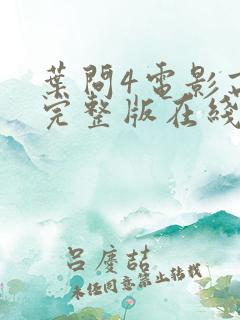 葉問4電影
完整版在綫
呂慶喆
未经同意禁止转载